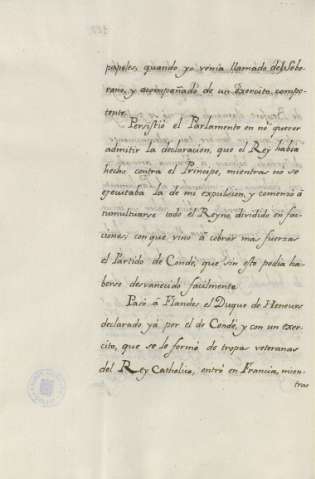 papeles, quando yo venia llamado del Sobe-
rano, y acompañado de un Exercito compe-
tente.
Persistió el Parlamento en no querer
admitir la declaracion, que el Rey habia
hecho contra el Principe, mientras no se
executaba la de mi expulsion, y comenzó à
tumultuarse todo el Reyno dividido en fac-
ciones; con que vino à cobrar mas fuerzas
el Partido de Condé, que sin esto podia ha-
berse desvanecido facilmente.
Pasó à Flandes el Duque de Nemurs
declarado yá por el de Condé, y con un exer-
cito, que se le formó de tropas veteranas
del Rey Catholico, entró en Francia, mien-
tras